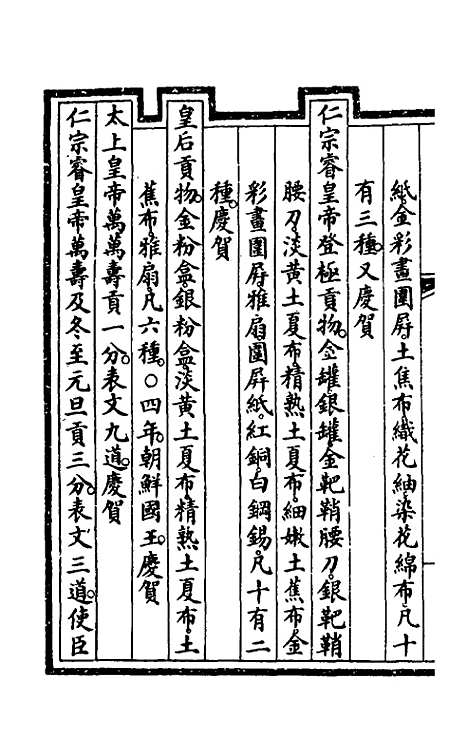 紙金彩畫圍屛土焦布織花紬染花綿布凡十
有三種又慶賀
仁宗睿皇帝登極貢物金罐銀罐金靶鞘腰刀銀靶鞘
腰刀淡黃土夏布精熟土夏布細嫩土蕉布金
彩畫圍屛雅扇圍屛紙紅銅白鋼錫凡十有二
種慶賀
皇后貢物金粉盒銀粉盒淡黃土夏布精熟土夏布土
蕉布雅扇凡六種○四年朝鮮國王慶賀
太上皇帝萬萬壽貢一分表文九道慶賀
仁宗睿皇帝萬壽及冬至元旦貢三分表文三道使臣